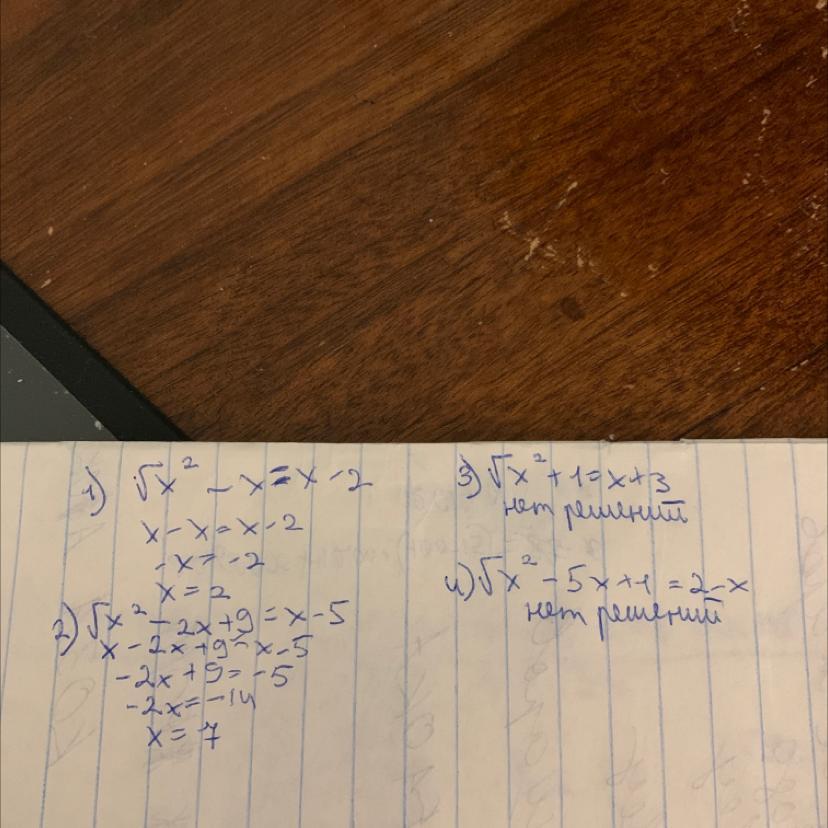 1) √x² - x = x - 2
x - x = x - 2
-x = -2
x = 2
2) √x² - 2x + 9 = x - 5
x - 2x + 9 = x - 5
-2x + 9 = -5
-2x = -14
x = 7
3) √x² + 1 = x + 3
нет решений
4) √x² - 5x + 1 = 2 - x
нет решений